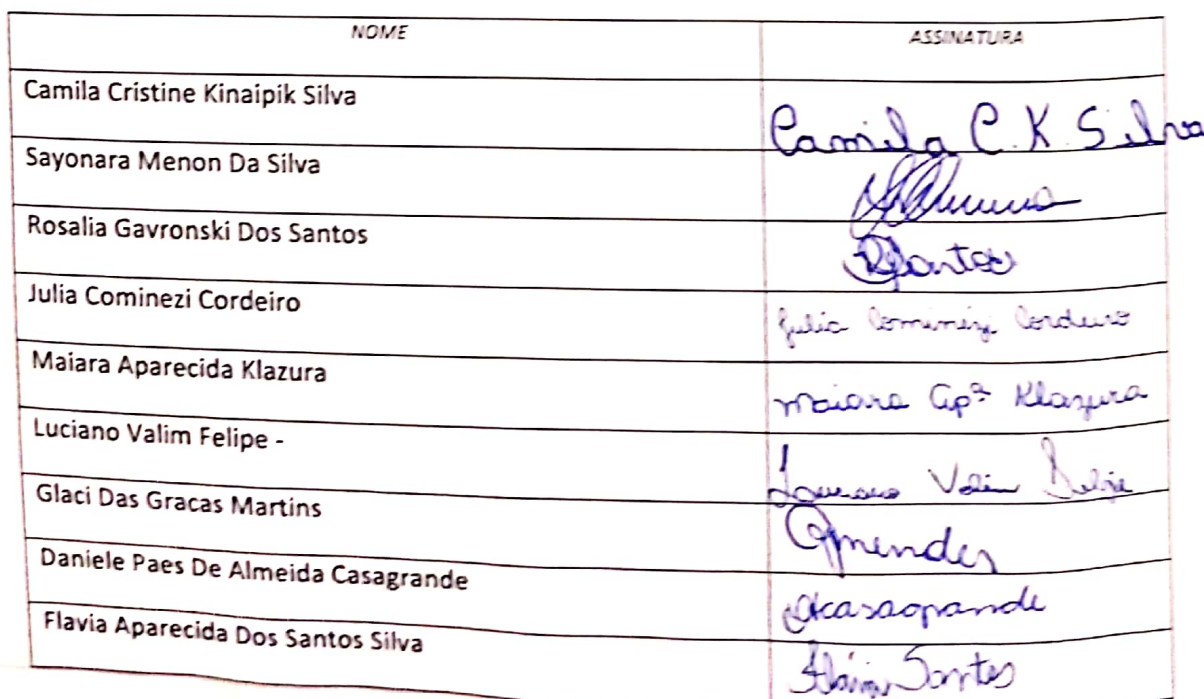 NOME ASSINATURA
Camila Cristine Kinaipik Silva Camila C. K. Silva
Sayonara Menon Da Silva
Rosalia Gavronski Dos Santos RSantos
Julia Cominezi Cordeiro Julia Cominezi Cordeiro
Maiara Aparecida Klazura Maiara Apª Klazura
Luciano Valim Felipe - Luciano Valim Felipe
Glaci Das Gracas Martins Gmendes
Daniele Paes De Almeida Casagrande dcasagrande
Flavia Aparecida Dos Santos Silva Flávia Santos